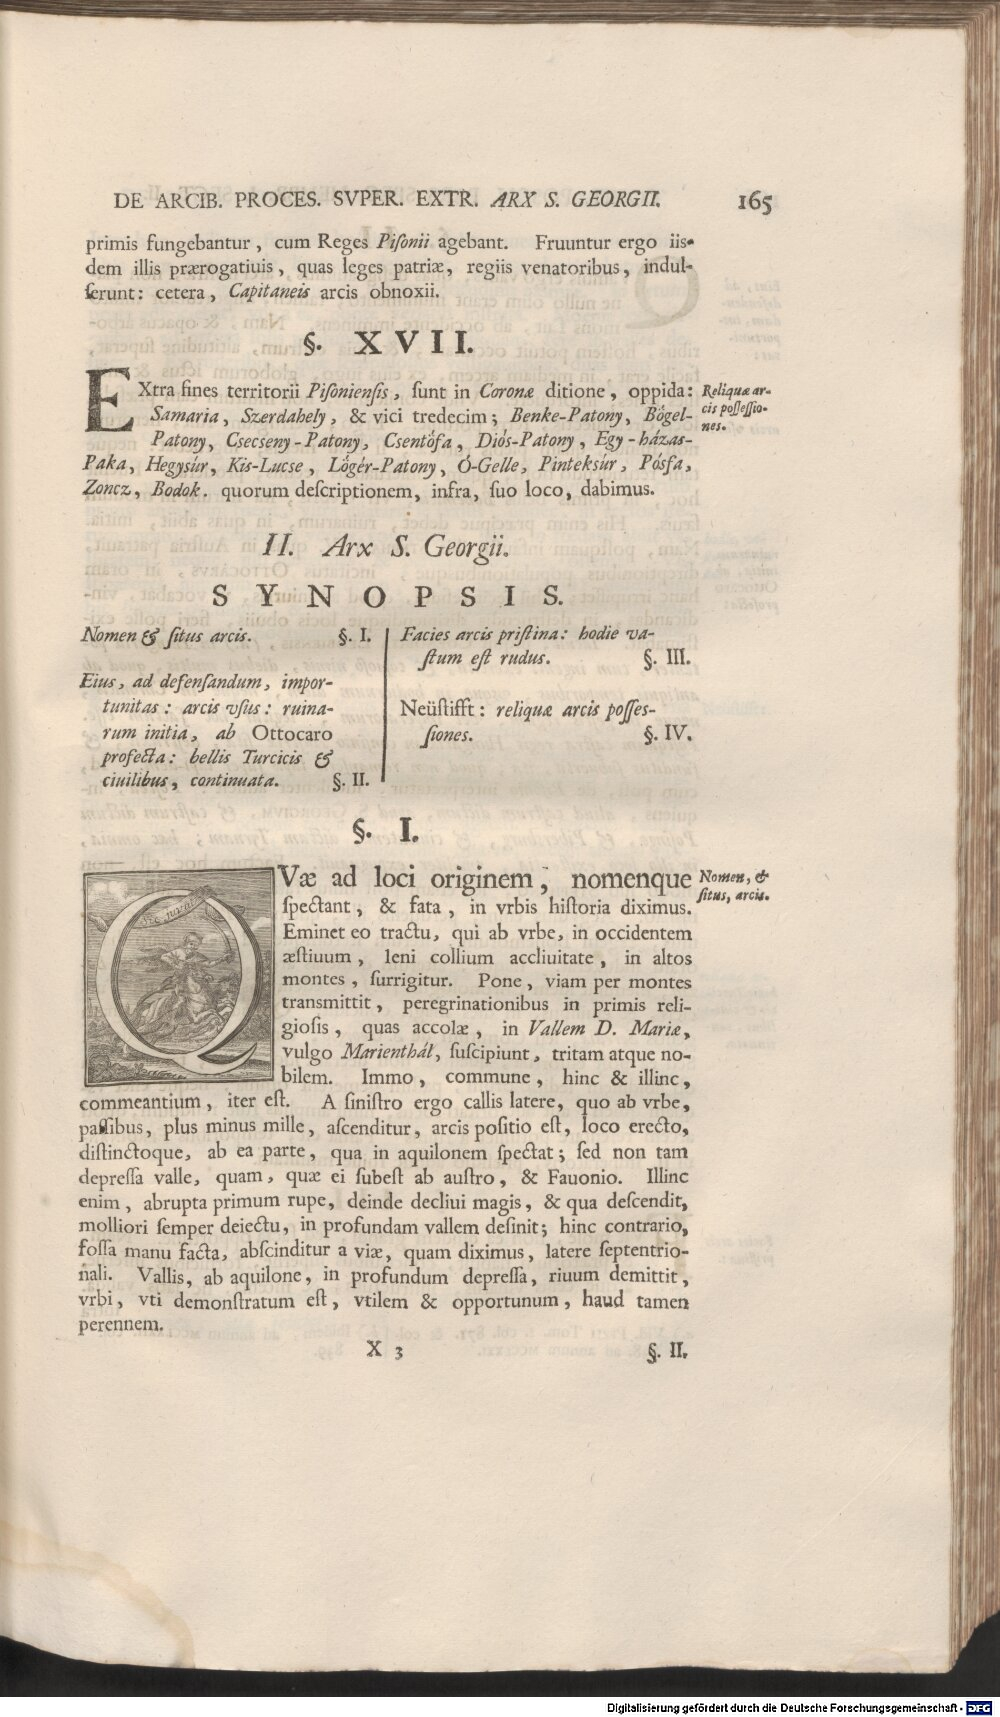 DE ARCIB. PROCES. SVPER. EXTR. ARX S. GEORGII. 165
primis fungebantur, cum Reges Piſonii agebant. Fruuntur ergo iis-
dem illis prærogatiuis, quas leges patriæ, regiis venatoribus, indul-
ſerunt: cetera, Capitaneis arcis obnoxii.
§. XVII.
EXtra fines territorii Piſonienſis, ſunt in Coronæ ditione, oppida:
Samaria, Szerdahely, & vici tredecim; Benke-Patony, Bögel-
Patony, Csecseny-Patony, Csentőfa, Diós-Patony, Egy-házas-
Paka, Hegysúr, Kis-Lucse, Lőgér-Patony, Ó-Gelle, Pinteksúr, Pósfa,
Zoncz, Bodok. quorum deſcriptionem, infra, ſuo loco, dabimus.
Reliquæ ar-
cis poſſeſſio-
nes.
II. Arx S. Georgii.
SYNOPSIS.
Nomen & ſitus arcis. §. I.
Eius, ad defenſandum, impor-
tunitas: arcis vſus: ruina-
rum initia, ab Ottocaro
profecta: bellis Turcicis &
ciuilibus, continuata. §. II.
Facies arcis priſtina: hodie va-
ſtum eſt rudus. §. III.
Neüſtifft: reliquæ arcis poſſeſ-
ſiones. §. IV.
§. I.
QVæ ad loci originem, nomenque
ſpectant, & fata, in vrbis hiſtoria diximus.
Eminet eo tractu, qui ab vrbe, in occidentem
æſtiuum, leni collium accliuitate, in altos
montes, ſurrigitur. Pone, viam per montes
transmittit, peregrinationibus in primis reli-
gioſis, quas accolæ, in Vallem D. Mariæ,
vulgo Marienthál, ſuſcipiunt, tritam atque no-
bilem. Immo, commune, hinc & illinc,
commeantium, iter eſt. A ſiniſtro ergo callis latere, quo ab vrbe,
paſſibus, plus minus mille, aſcenditur, arcis poſitio eſt, loco erecto,
diſtinctoque, ab ea parte, qua in aquilonem ſpectat; ſed non tam
depreſſa valle, quam, quæ ei ſubeſt ab auſtro, & Fauonio. Illinc
enim, abrupta primum rupe, deinde decliui magis, & qua deſcendit,
molliori ſemper deiectu, in profundam vallem deſinit; hinc contrario,
foſſa manu facta, abſcinditur a viæ, quam diximus, latere ſeptentrio-
nali. Vallis, ab aquilone, in profundum depreſſa, riuum demittit,
vrbi, vti demonſtratum eſt, vtilem & opportunum, haud tamen
perennem.
Nomen, &
ſitus, arcis.
X 3 §. II.
Digitalisierung gefördert durch die Deutsche Forschungsgemeinschaft - DFG